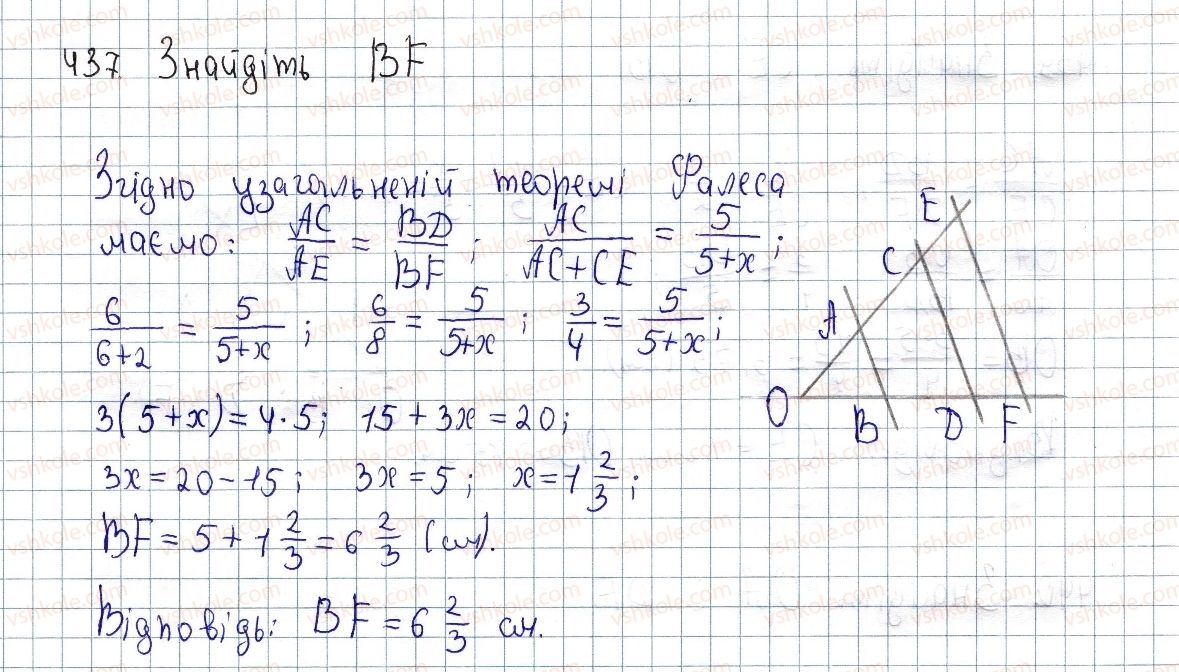 437. Знайдіть BF
Згідно узагальненій теоремі Фалеса
маємо: AC/AE = BD/BF; AC/(AC+CE) = 5/(5+x);
6/(6+2) = 5/(5+x); 6/8 = 5/(5+x); 3/4 = 5/(5+x);
3(5+x)=4·5; 15+3x=20;
3x=20-15; 3x=5; x=1 2/3;
BF=5+1 2/3=6 2/3 (см).
Відповідь: BF=6 2/3 см.
E
C
A
O B D F